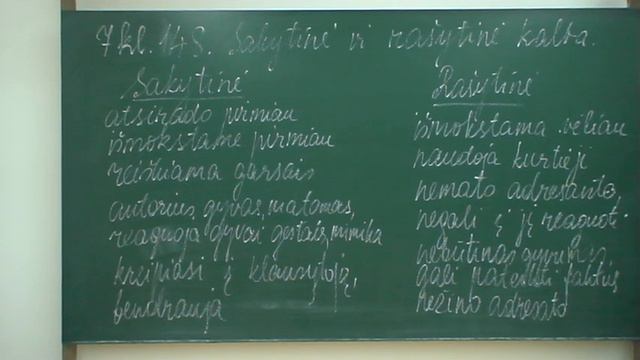 7 kl. 14 S. Sakytinė ir rašytinė kalba.
Sakytinė
atsirado pirmiau
išmokstame pirmiau
reiškiama garsais
autorius gyvas, matomas,
reaguoja gyvai gestais, mimika
kreipiasi į klausytoją,
bendrauja
Rašytinė
išmokstama vėliau
naudoja kurtieji
nemato adresanto,
negali į jį reaguoti
nebūtinas
gali pateikti faktus
nežino adresato